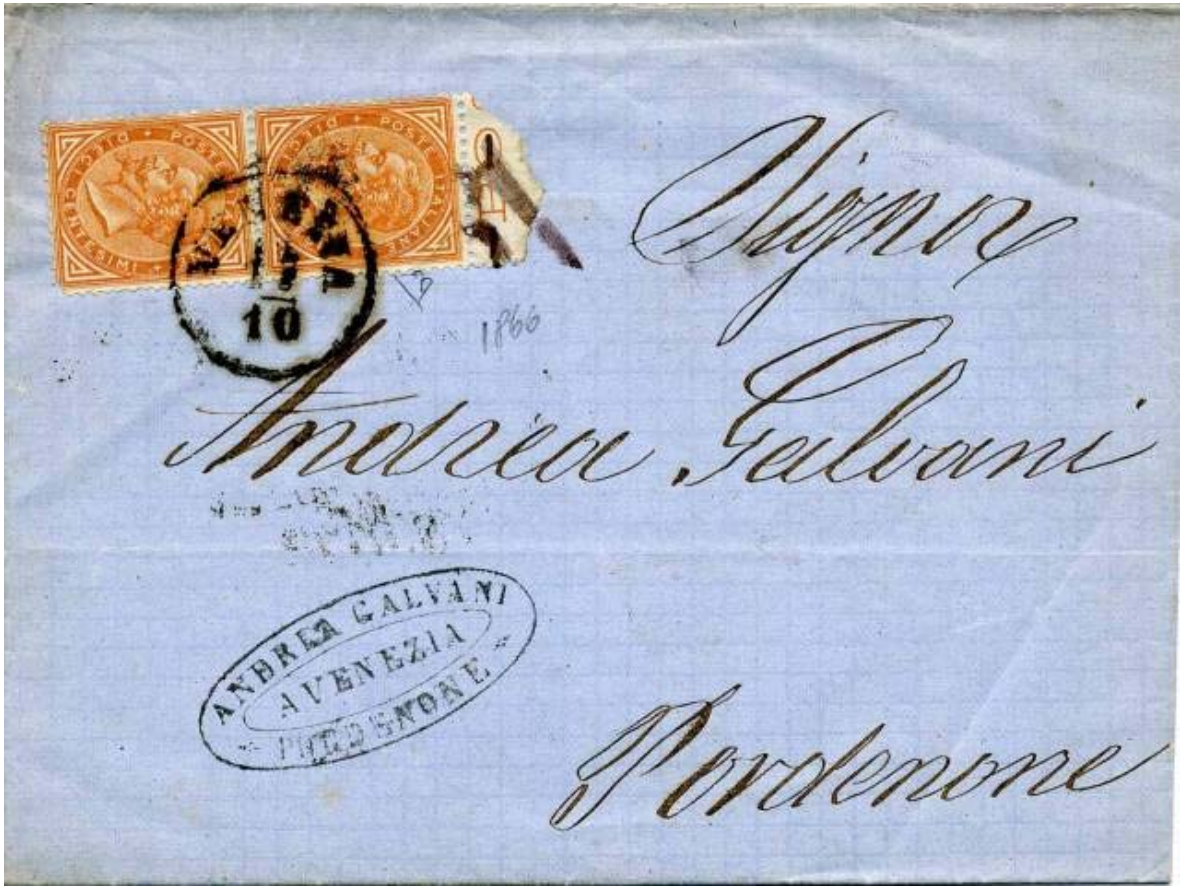 POSTE ITALIANE + DIECI CENTESIMI +
POSTE ITALIANE + DIECI
10
1866
Signor
Andrea Galvani
ANDREA GALVANI
A VENEZIA
Pordenone